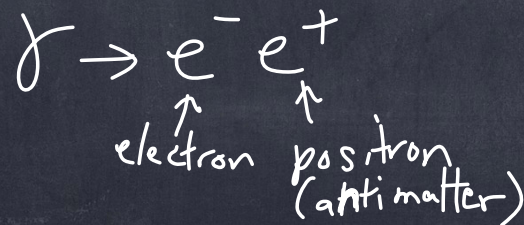 γ → e⁻ e⁺
↑ ↑
electron positron
(antimatter)